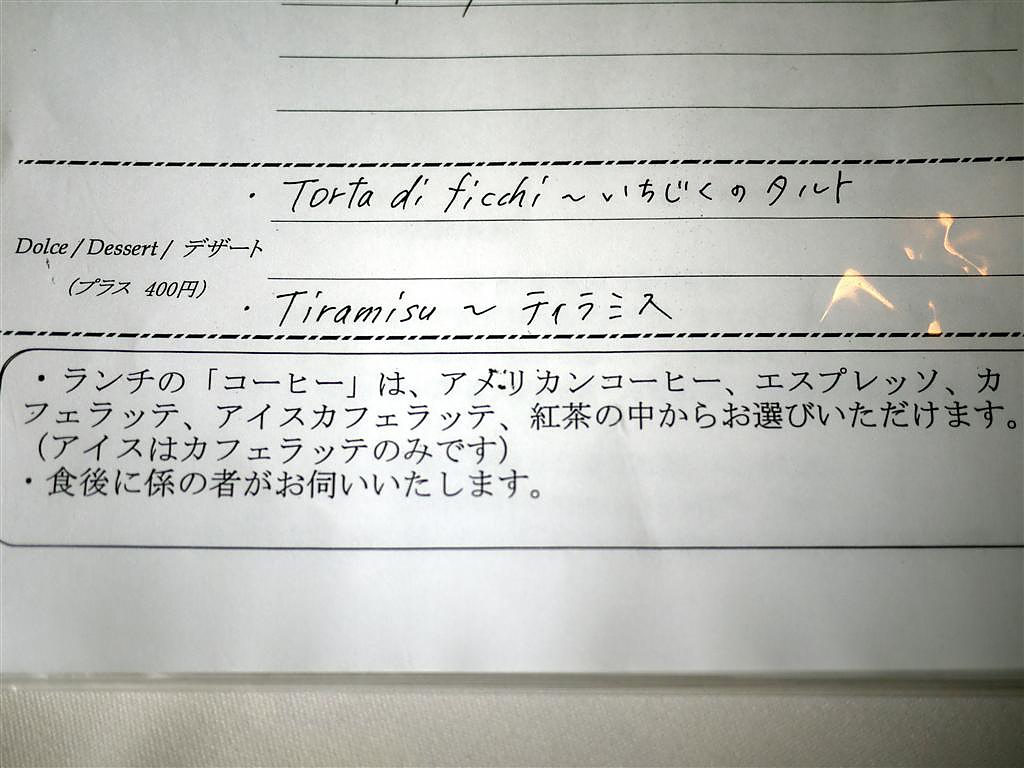 ・Torta di ficchi ~ いちじくのタルト
Dolce / Dessert / デザート
（プラス 400円）
・Tiramisu ~ ティラミス
・ランチの「コーヒー」は、アメリカンコーヒー、エスプレッソ、カ
フェラッテ、アイスカフェラッテ、紅茶の中からお選びいただけます。
（アイスはカフェラッテのみです）
・食後に係の者がお伺いいたします。